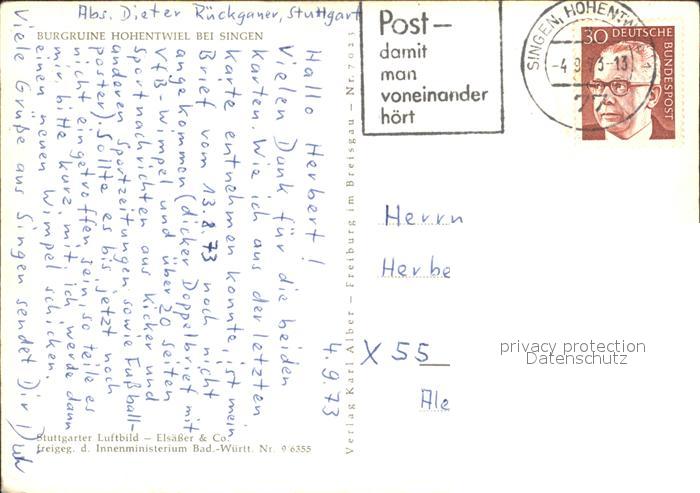 Abs. Dieter Rückganer, Stuttgart
BURGRUINE HOHENTWIEL BEI SINGEN
4.9.73
Hallo Herbert!
Vielen Dank für die beiden
Karten. Wie ich aus der letzten
Karte entnehmen konnte, ist mein
Brief vom 13.8.73 noch nicht
angekommen (dicker Doppelbrief mit
VfB-Wimpel und über 20 Seiten
Sportnachrichten aus Kicker und
anderen Sportzeitungen sowie Fußball-
poster). Sollte es bis jetzt noch
nicht eingetroffen sein, so teile es
mir bitte kurz mit, ich werde dann
einen neuen Wimpel schicken.
Viele Grüße aus Singen sendet Dir
Stuttgarter Luftbild – Elsäßer & Co.
freigeg. d. Innenministerium Bad.-Württ. Nr. 9 6355
Verlag Karl Alber – Freiburg im Breisgau – Nr.
Post–
damit
man
voneinander
hört
SINGEN, HOHENTW
-4.9.73-13
77
30 DEUTSCHE
BUNDESPOST
Herrn
Herbe
X 55
Ale
privacy protection
Datenschutz